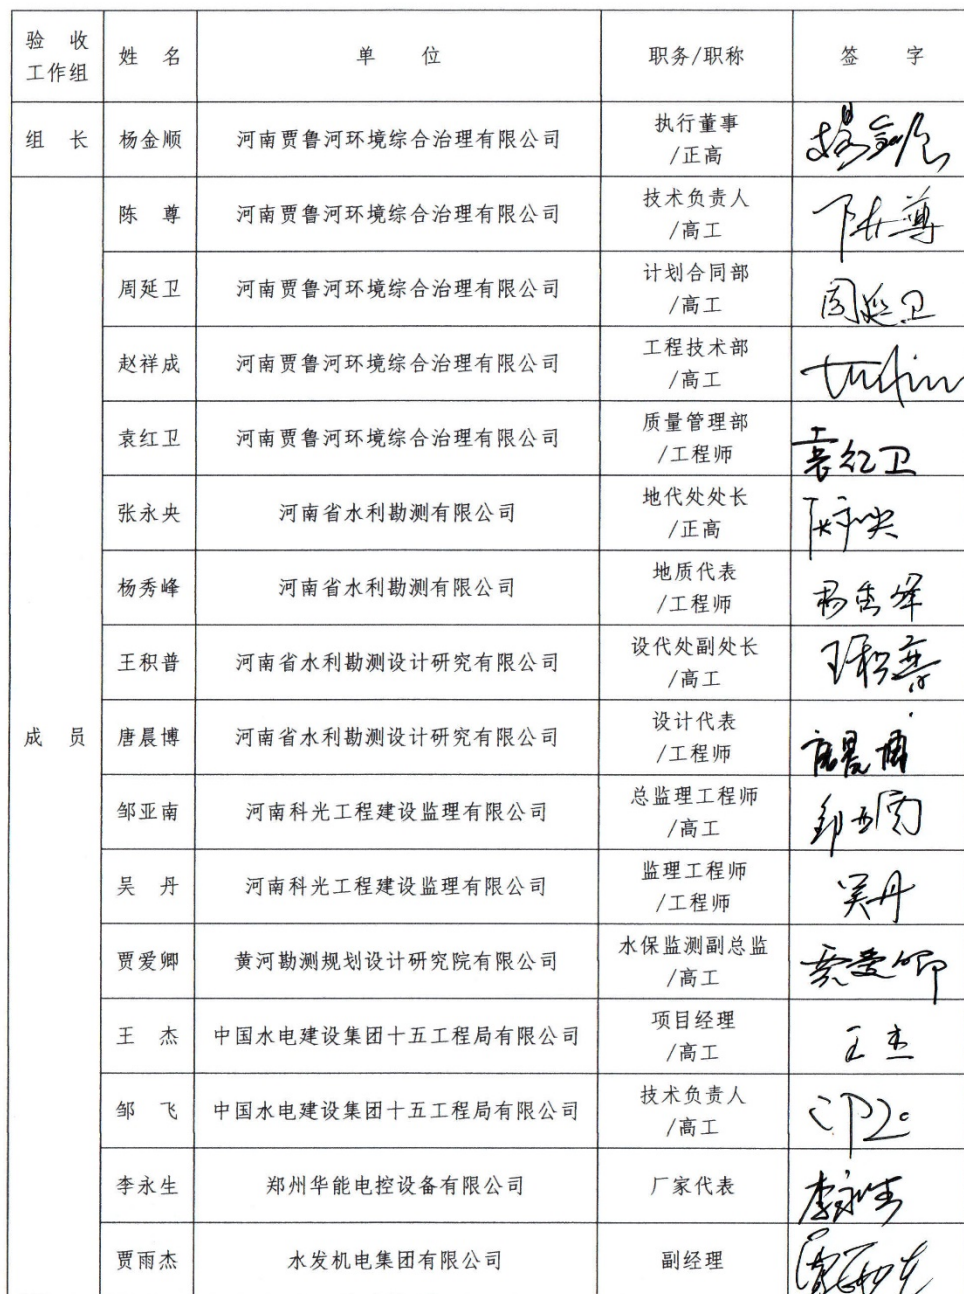 验 收
工作组 姓 名 单 位 职务/职称 签 字
组 长 杨金顺 河南贾鲁河环境综合治理有限公司 执行董事
/正高 杨金顺
成 员
陈 尊 河南贾鲁河环境综合治理有限公司 技术负责人
/高工 陈尊
周延卫 河南贾鲁河环境综合治理有限公司 计划合同部
/高工 周延卫
赵祥成 河南贾鲁河环境综合治理有限公司 工程技术部
/高工
袁红卫 河南贾鲁河环境综合治理有限公司 质量管理部
/工程师 袁红卫
张永央 河南省水利勘测有限公司 地代处处长
/正高 张永央
杨秀峰 河南省水利勘测有限公司 地质代表
/工程师 杨秀峰
王积普 河南省水利勘测设计研究有限公司 设代处副处长
/高工 王积普
唐晨博 河南省水利勘测设计研究有限公司 设计代表
/工程师 唐晨博
邹亚南 河南科光工程建设监理有限公司 总监理工程师
/高工 邹亚南
吴 丹 河南科光工程建设监理有限公司 监理工程师
/工程师 吴丹
贾爱卿 黄河勘测规划设计研究院有限公司 水保监测副总监
/高工 贾爱卿
王 杰 中国水电建设集团十五工程局有限公司 项目经理
/高工 王杰
邹 飞 中国水电建设集团十五工程局有限公司 技术负责人
/高工
李永生 郑州华能电控设备有限公司 厂家代表 李永生
贾雨杰 水发机电集团有限公司 副经理